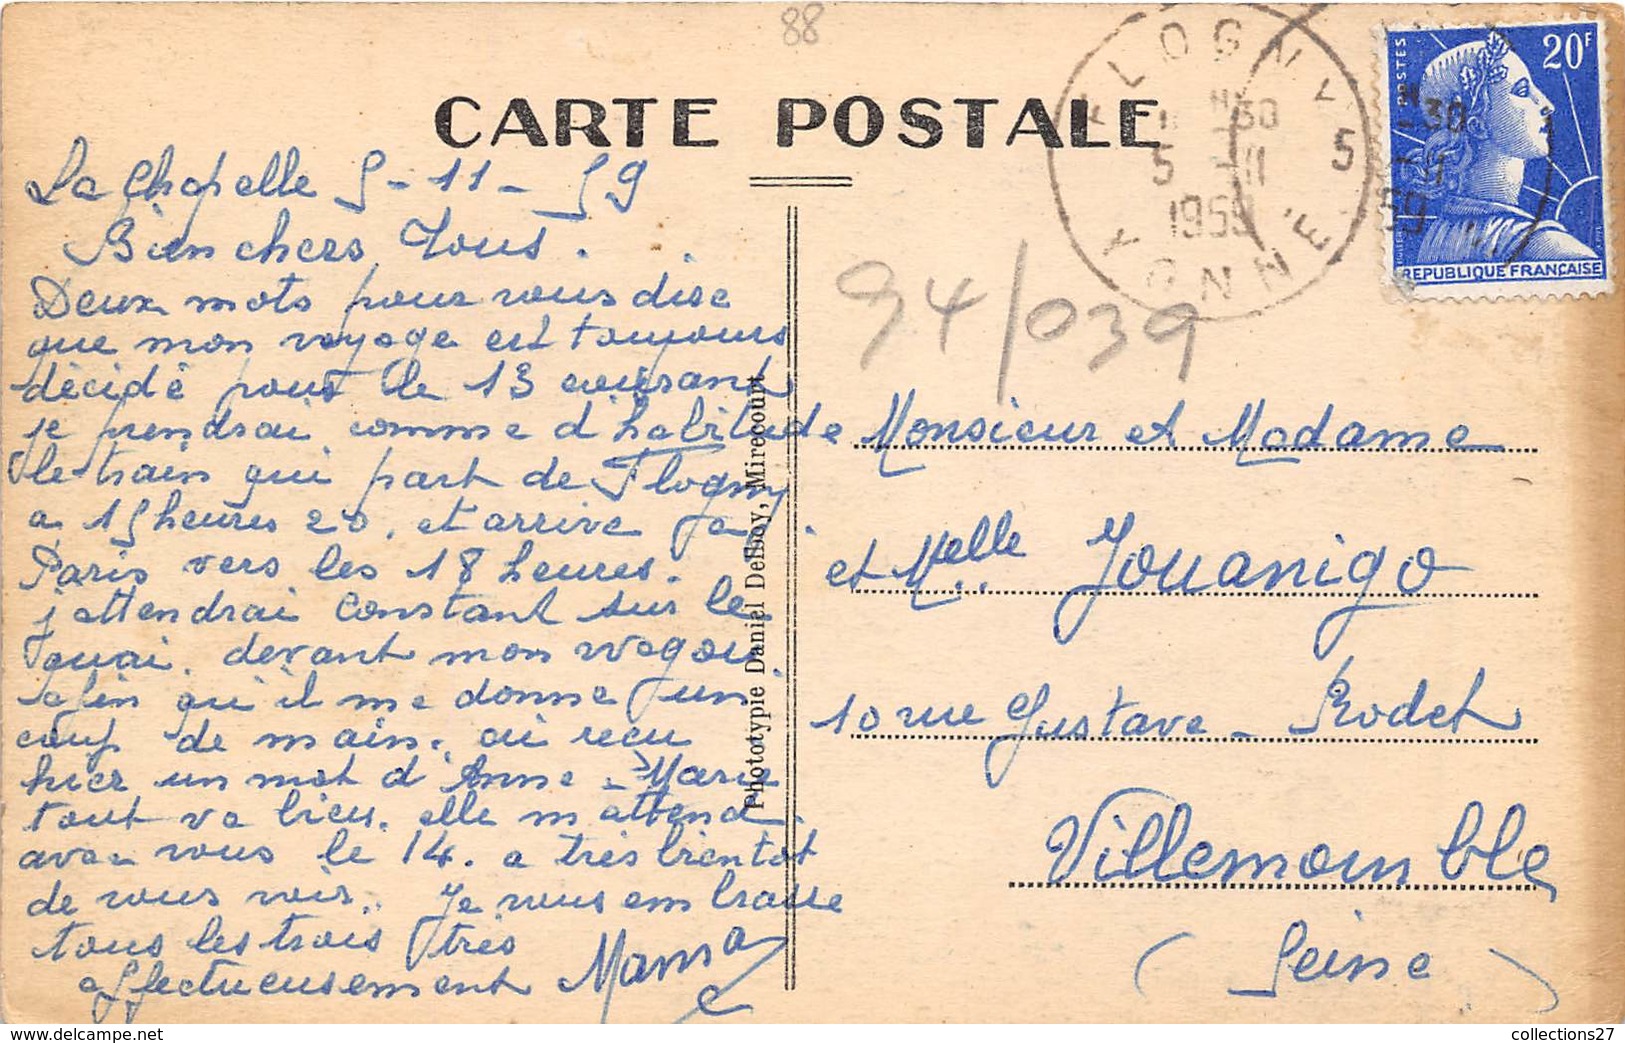 88
CARTE POSTALE
La Chapelle 5-11-59
Bien chers Tous.
Deux mots pour vous dire
que mon voyage est toujours
décidé pour le 13 courant
je prendrai comme d'habitude
le train qui part de Flogny
a 15 heures 20. et arrive a
Paris vers les 18 heures.
j'attendrai Constant sur le
quai. devant mon wagon.
afin qu'il me donne un
coup de main. ai reçu
hier un mot d'Anne-Marie
tout va bien. elle m'attend
avec vous le 14. a très bientot
de vous voir. Je vous embrasse
tous les trois très
affectueusement Mama
Phototypie Daniel Delboy, Mirecourt
FLOGNY
H 30
5 -11
1959
5
YONNE
POSTES
20F
REPUBLIQUE FRANÇAISE
94/039
Monsieur et Madame
et Melle Jouanigo
10 rue Gustave-Rodet
Villemoumble
(Seine)
collections27